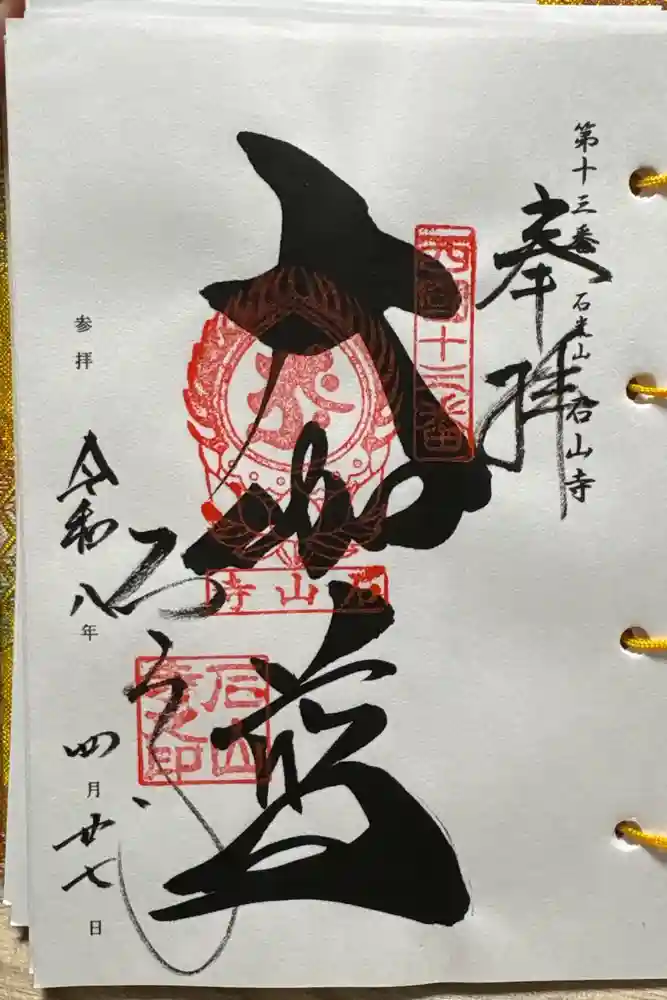 第十三番 石光山 石山寺
奉拝
西国十三番
大伽藍
石山寺
石山寺
石山寺之印
参拝
令和八年
四月廿七日